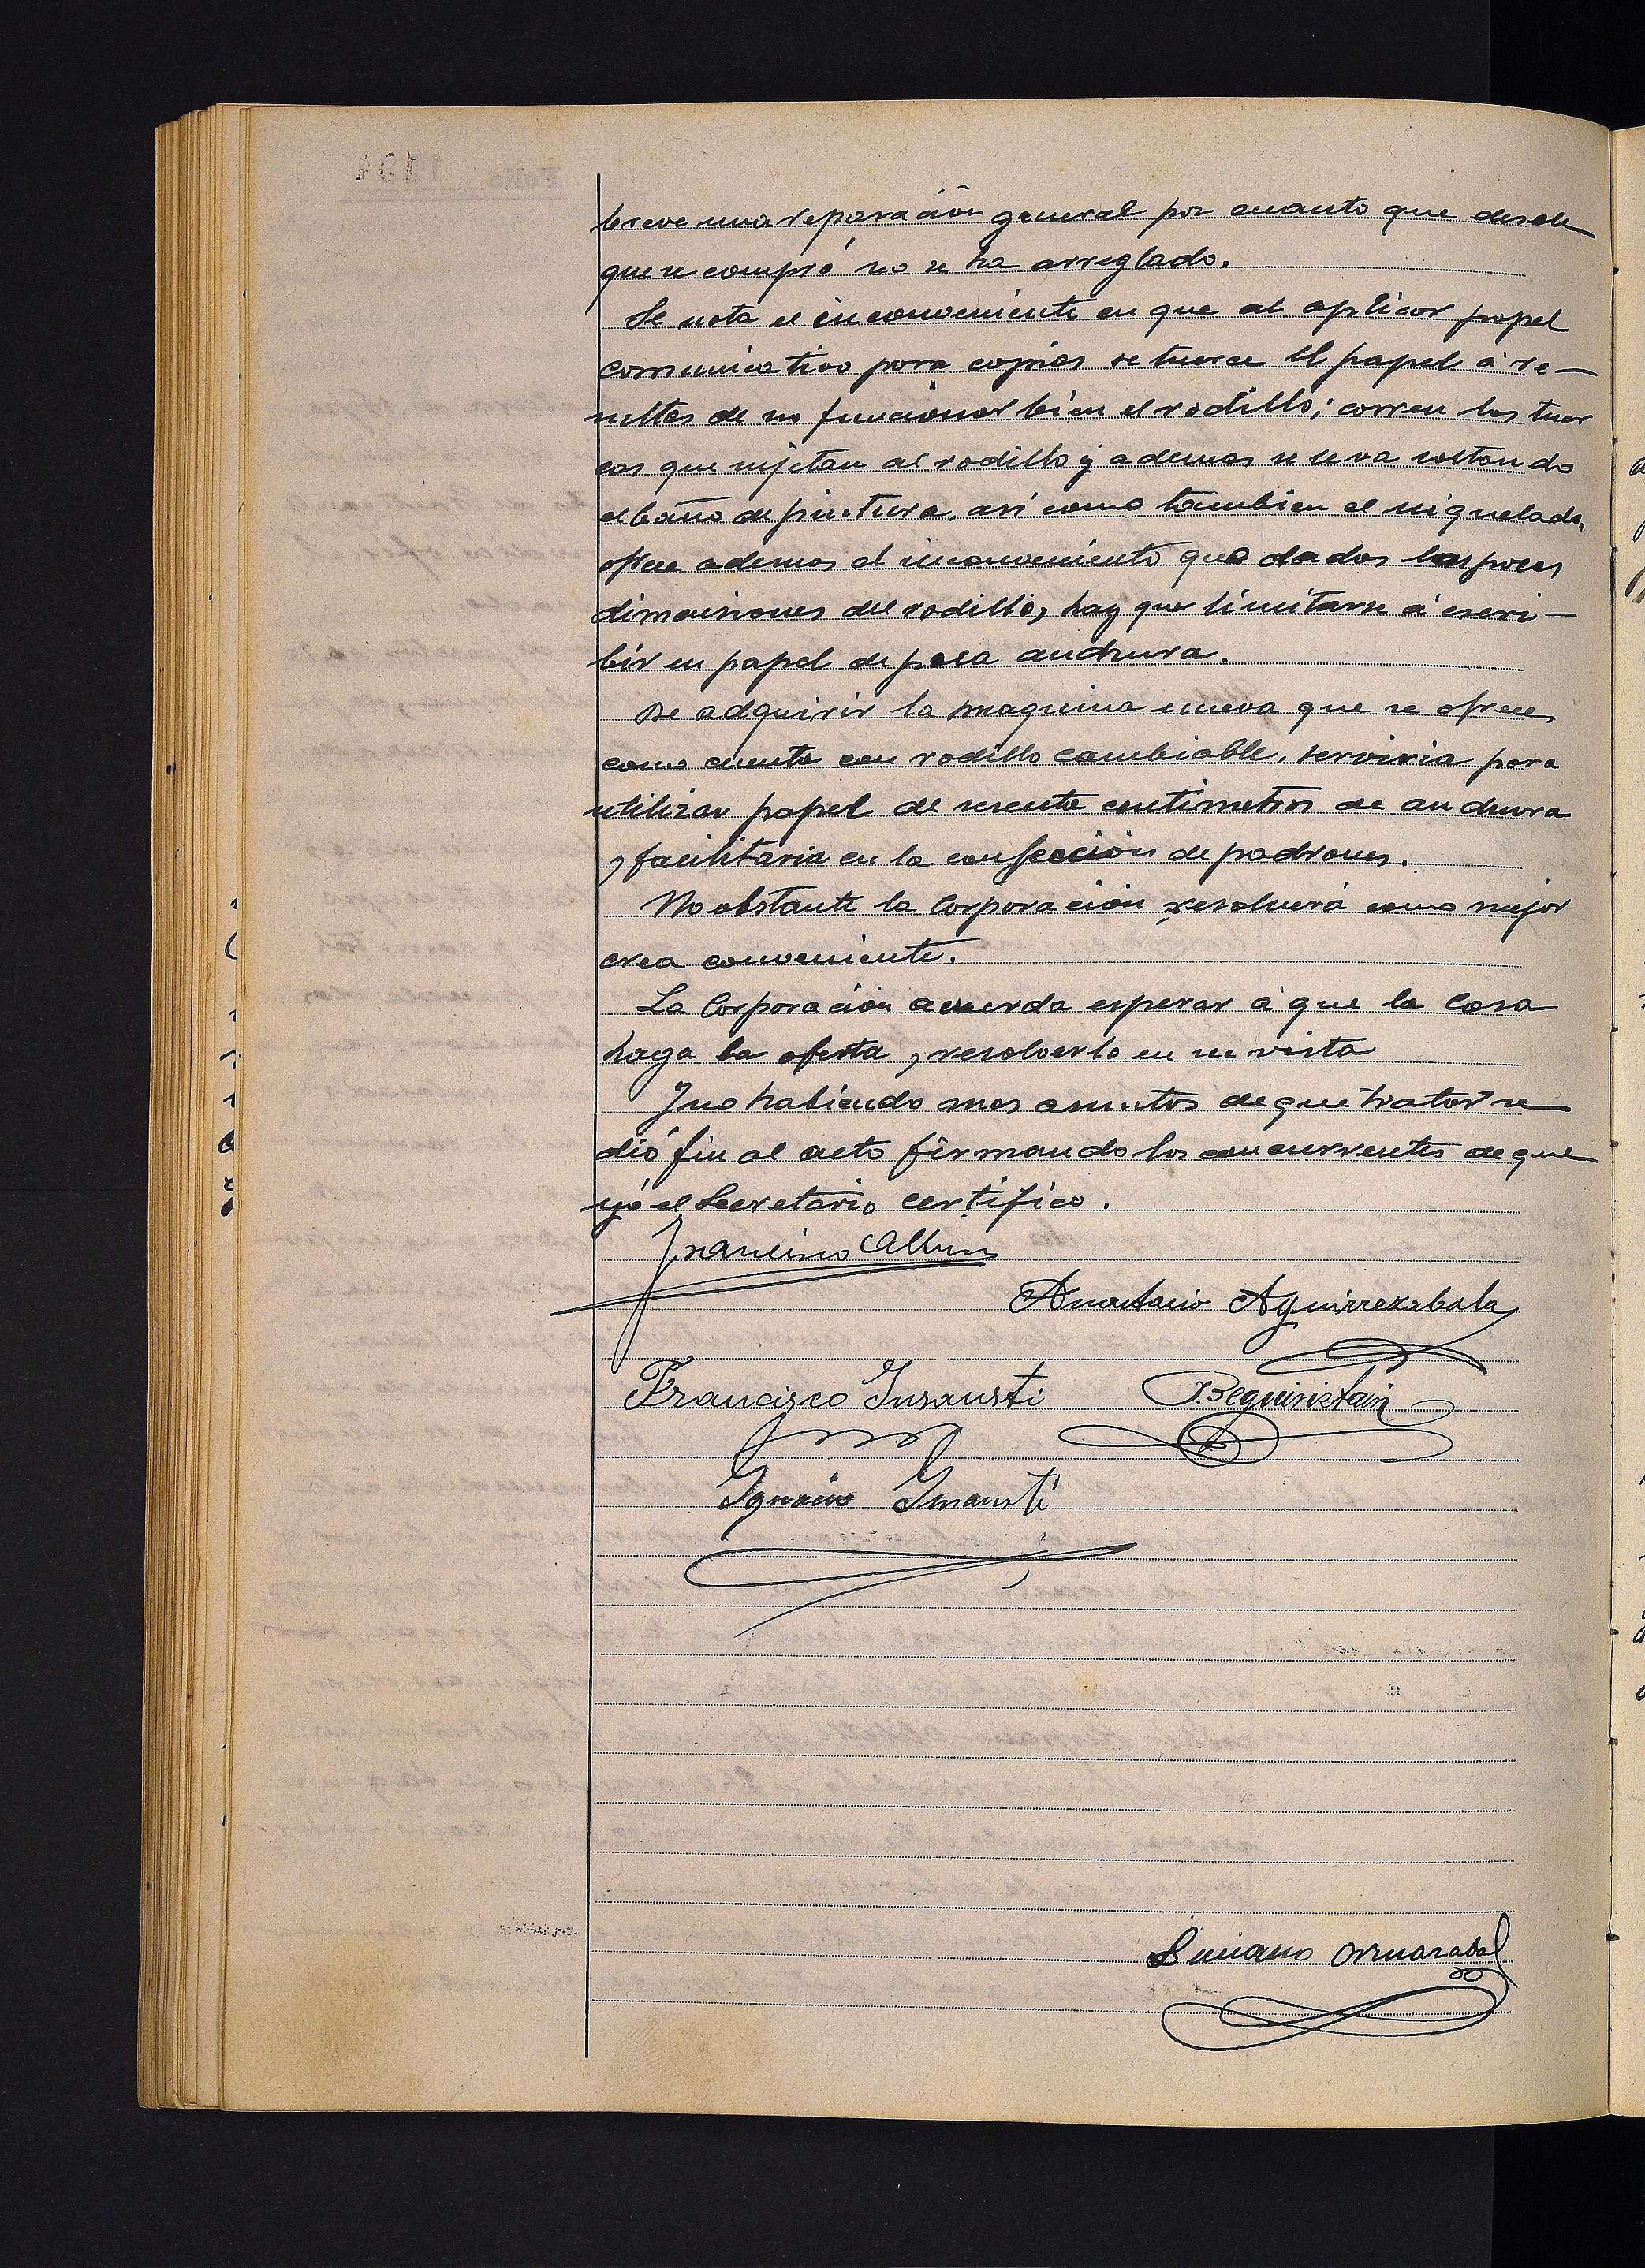 breve una reparación general por cuanto que desde
que se compró no se ha arreglado.
Se nota el inconveniente en que al aplicar papel
comunicativo para copias se tuerce el papel á re-
sultas de no funcionar bien el rodillo; corren las tuer
cas que sujetan al rodillo y ademas se leva soltando
el baño de pintura, asi como tambien el niquelado,
ofrece ademas el inconveniente que dadas las pocas
dimensiones del rodillo, hay que limitarse á escri-
bir en papel de poca anchura.
De adquirir la maquina nueva que se ofrece,
como cuenta con rodillo cambiable, serviria para
utilizar papel de sesenta centimetros de anchura
y facilitaria en la confección de padrones.
No obstante la Corporación resolverá como mejor
crea conveniente.
La Corporación acuerda esperar á que la Casa
haga la oferta y resolverlo en su vista
Y no habiendo mas asuntos de que tratar se
dió fin al acto firmando los concurrentes de que
yó el Secretario certifico.
Francisco
Anastasio Aguirrezabala
Francisco Insausti P. Beguiristain
Ignacio Insausti
Luciano Ormazabal